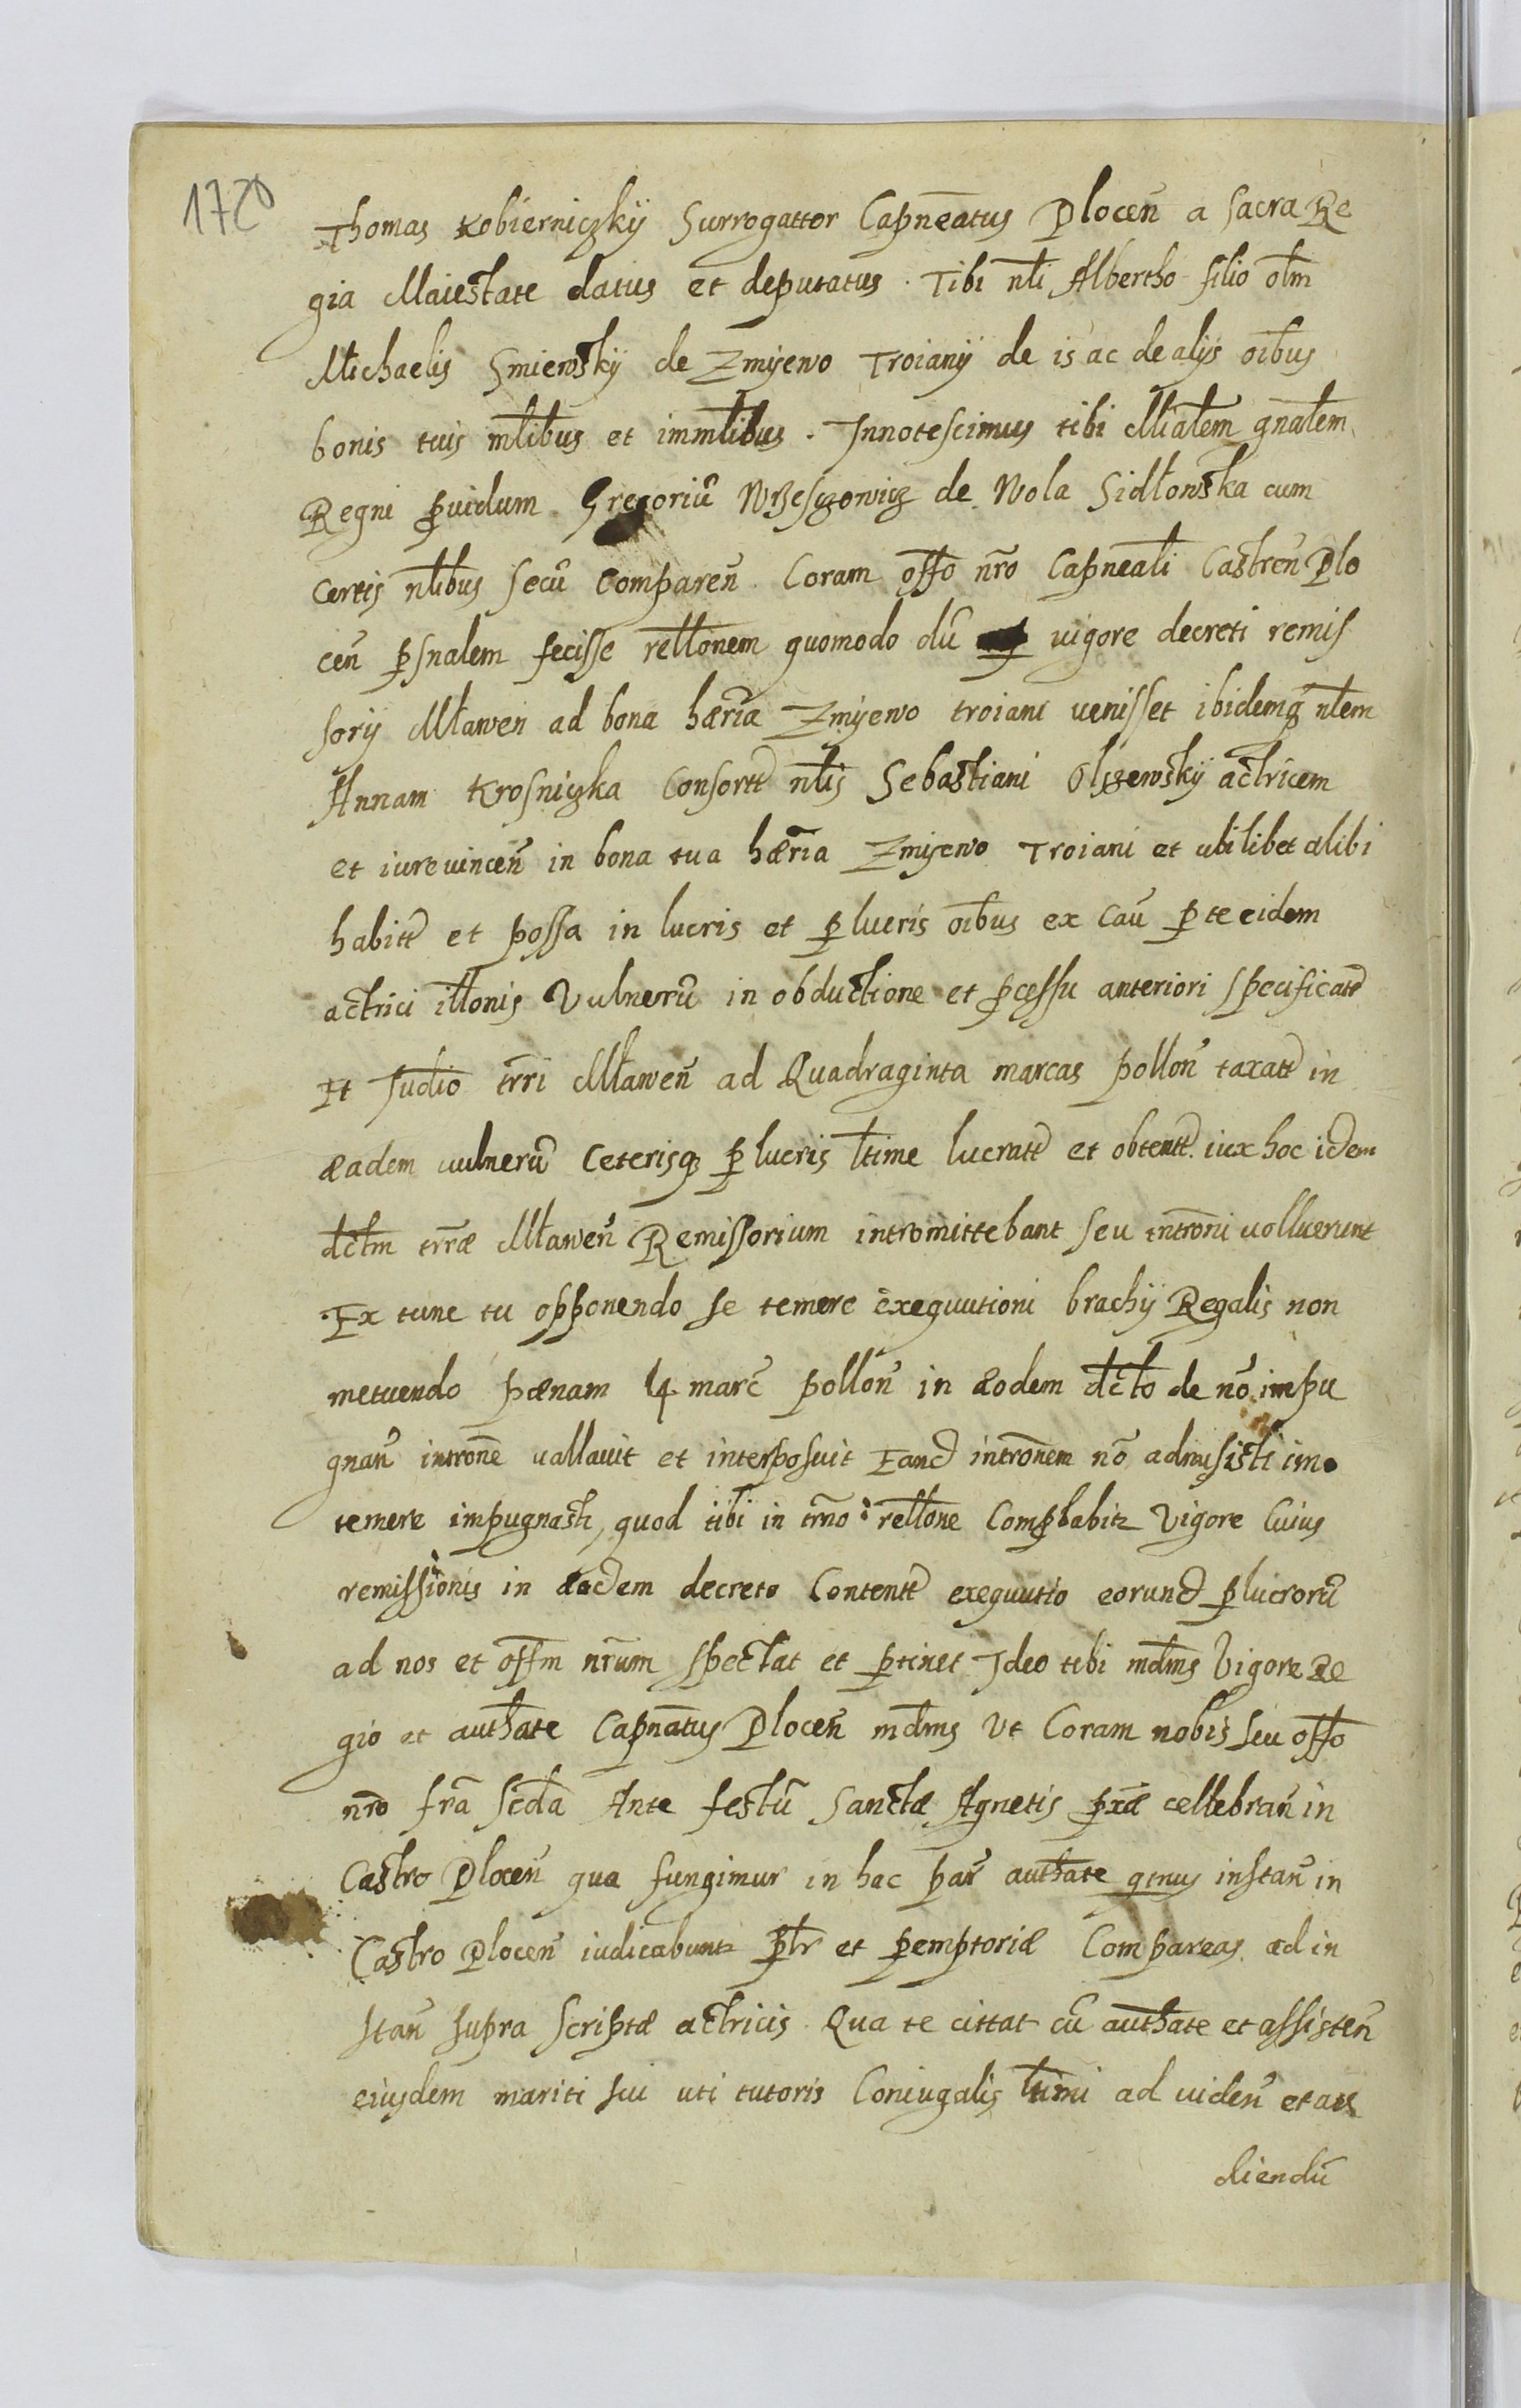 1720
Thomas Kobierniczkÿ Surrogattor Capn̅eatus Plocen̄ a Sacra Re
gia Maiestate datus et deputatus. Tibi nl̄i Albertho filio ol̄m
Michaelis Smiewskÿ de Zmÿewo Troianÿ de is ac de alÿs oībus
bonis tuis ml̄ibus et imml̄ibus. Innotescimus tibi Mīalem gnālem
Regni p̱uidum Gregoriū Wrzesczowicz de Wola Sidłowska cum
certis nl̄ibus secū Comparen̄ Coram offo̅ nr̄o Capneal̄i Castren̄ Plo
cen̄ p̱snalem fecisse rell̄onem quomodo dū uigore decreti remis
sorÿ Mławen̄ ad bona hær̄ia Zmÿewo troiani uenisset ibidemq nl̄em
Annam Krosniczka Consortē nl̄is Sebastiani Olszewskÿ actricem
et iureuincen̄ in bona tua hær̄ia Zmÿewo Troiani et ubilibet alibi
habitt̄ et possa in lucris et p̱lucris oībus ex Cau̅ p̱ te eidem
actrici ill̄onis Vulnerū in obductione et p̱cessu anteriori specificatt̄
Et Iudi̅o tr̄ri Mławen̄ ad Quadraginta marcas pollon̄ taxatt̄ in
æadem uulnerū Ceterisq p̱lucris l̄time lucratt̄ et obtentt̄ iux hoc idem
dctm̅ tr̄ræ Mławen̄ Remissorium intromittebant seu intro̅ni volluerunt
Ex tunc tu opponendo se temere exequutioni brachÿ Regalis non
metuendo pænam 14 marc̄ pollon̄ in æodem dcto̅ de no̅ impu
gnan̄ intro̅ne uallauit et interposuit Eand̄ intro̅nem no̅ admisisti imo
temere impugnasti, quod tibi in tr̄no rell̄one Comp̱babitz Vigore Cuius
remissionis in æodem decreto Contentt̄ exequutio eorund̄ p̱lucrorū
ad nos et offm̅ nr̄um spectat et p̱tinet Ideo tibi md̅ms Vigore Re
gio et autha̅te Capna̅tus Plocen̄ md̅ms Vt Coram nobis seu offo̅
nr̄o fr̄a scd̅a Ante festū Sanctæ Agnetis p̱xæ cellebran̄ in
Castro Plocen̄ qua fungimur in hac par̄ autha̅te qtnus instan̄ in
Castro Plocen̄ iudicabuntz p̱lr et p̱emptoriæ Compareas ad in
stan̄ supra Scriptæ actricis. Qua te cittat cū autha̅te et assisten̄
eiusdem mariti sui uti tutoris Coniugalis l̄timi ad uiden̄ et au
diendū